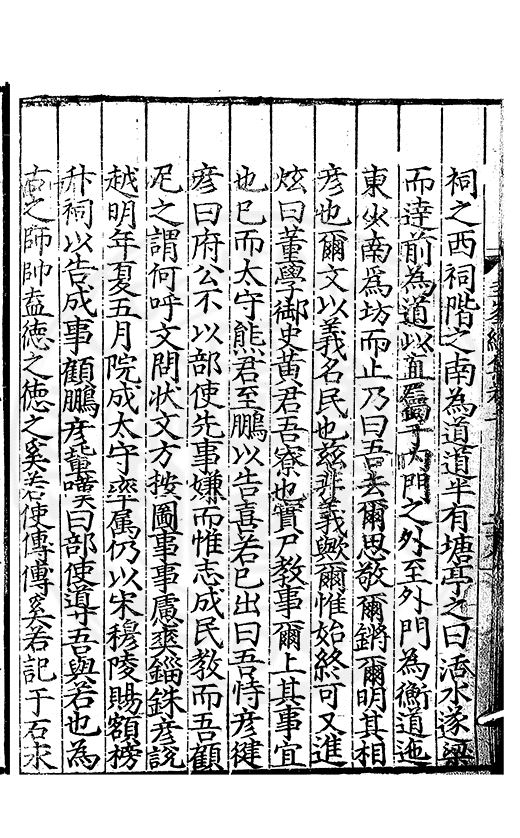 祠之西祠階之南為道道半有塘亭之曰活水遂梁
而逹前為道以直屬于内門之外至外門為衡道迤
東少南爲坊而止乃曰吾去爾思敬爾鏘爾明其相
彦也爾文以義名民也兹非義歟爾惟始終可又進
炫曰董學御史黄君吾寮也實尸教事爾上其事宜
也已而太守熊君至鵬以告喜若已出曰吾恃彦健
彦曰府公不以部使先事嫌而惟志成民教而吾顧
尼之謂何呼文問狀文方按圖事事慮爽錙銖彦説
越明年夏五月院成太守率属仍以宋穆陵賜額榜
祠以告成事顧鵬彦輩嘆曰部使導吾與若也為
古之師帥盍徳之徳之奚若使傳傳奚若記于石求